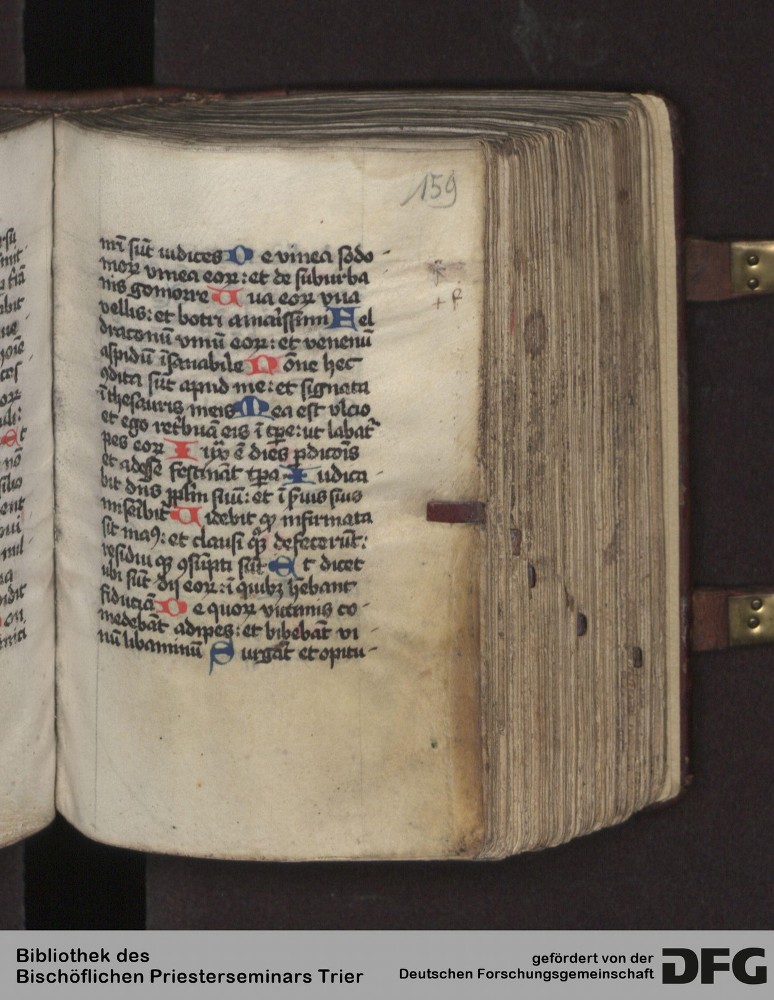 159
mi͞ su͞t iudices De vinea sodo-
moꝝ vinea eoꝝ: et de suburba
nis gomorre Uua eoꝝ vua
vellis: et botri amarissimi Fel
draconu͞ vinu͞ eoꝝ: et venenu͞
aspidu͞ i͞sanabile No͞ne hec
ꝯdita su͞t apud me: et signata
i͞ thesauris meis Mea est vlcio
et ego ret͛bua͞ eis i͞ tp͞e: ut labat᷑
pes eoꝝ Iux͞ e͞ dies p͟dico͞is
et adesse festina͞t tp͞a Iudica-
bit dn͞s pp͞lm suu͞: et i͞ s͛uis suis
mise͛bit᷑ Uidebit ꝙ infirmata
sit maꝰ: et clausi qꝫ defeceru͞t:
residui qꝫ ꝯsu͞pti su͞t Et dicet
ubi su͞t dij eoꝝ: i͞ quibꝫ h͞ebant
fiducia͞ De quoꝝ victimis co-
medeba͞t adipes: et bibeba͞t vi-
nu͞ libaminu͞ Surga͞t et opitu-
Bibliothek des
Bischöflichen Priesterseminars Trier
gefördert von der
Deutschen Forschungsgemeinschaft DFG